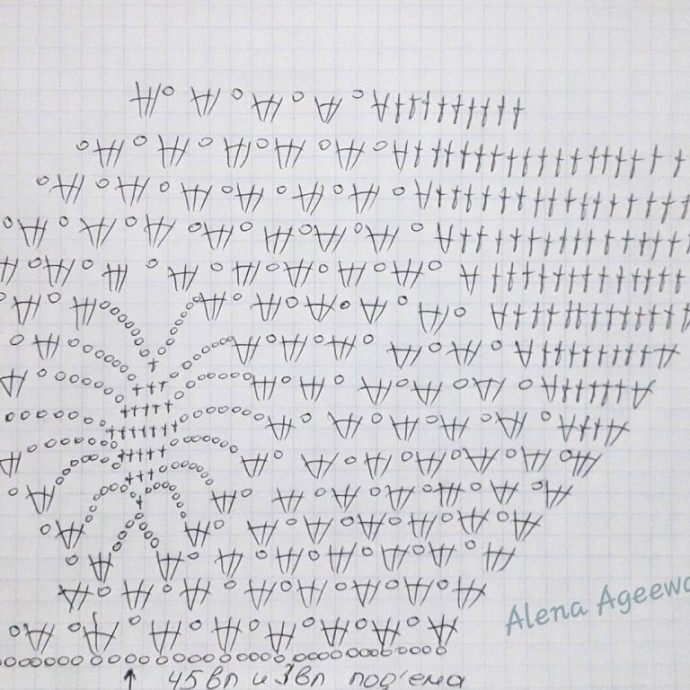 Alena Ageewa
↑ 45вп и 3вп под'ема